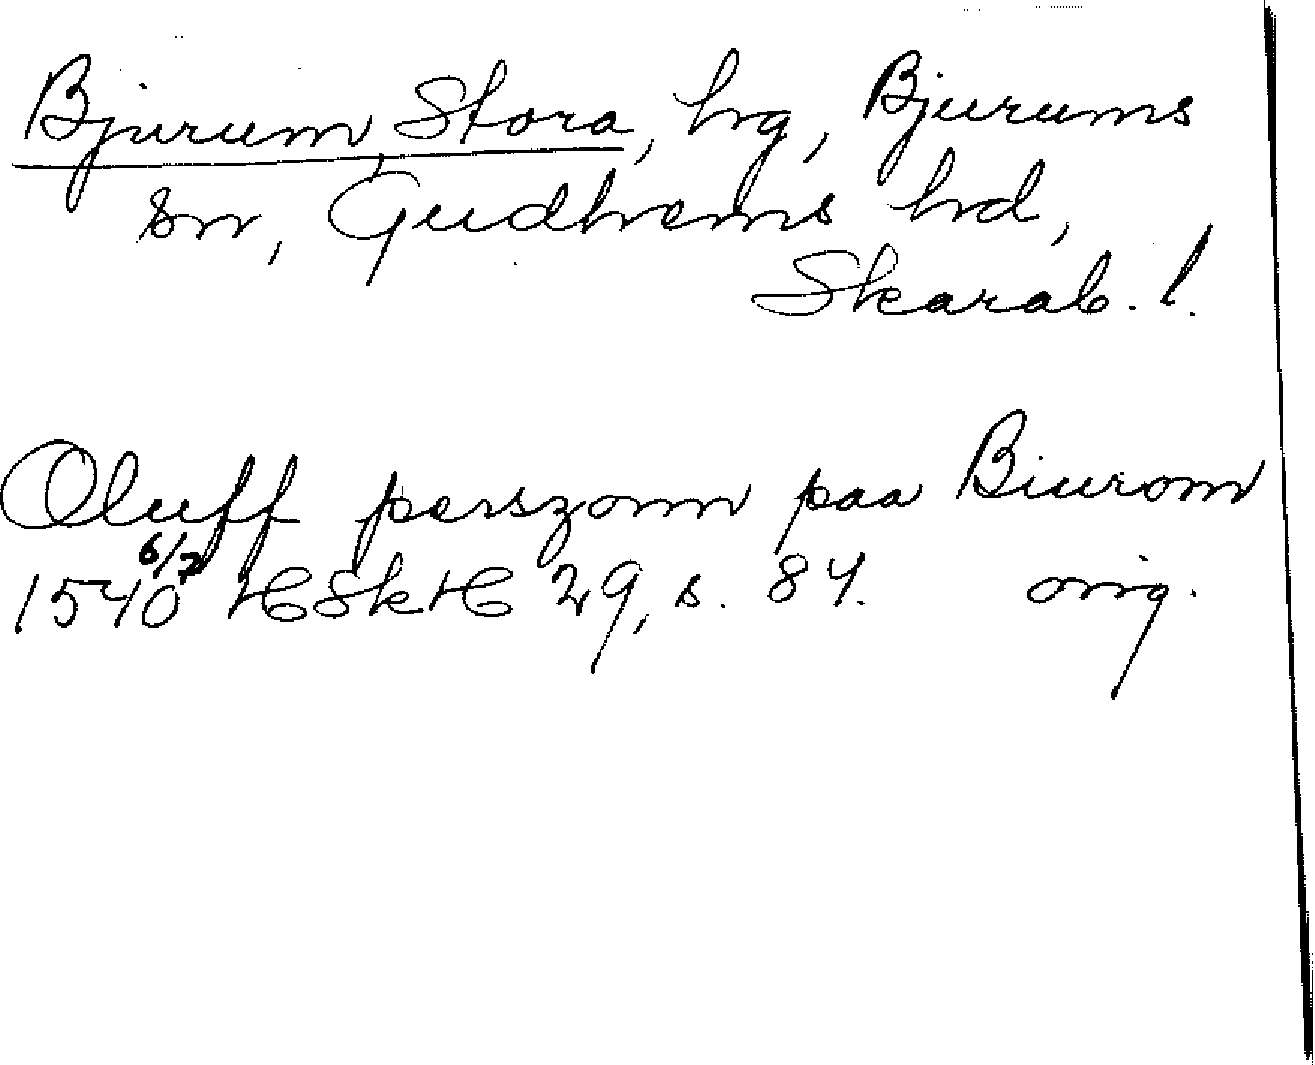 Bjurum, Stora, hg, Bjurums
sn, Gudhems hd,
Skarab. l.
Oluff perszonn paa Biurom
1540 6/7 HSkH 29, s. 84. orig.